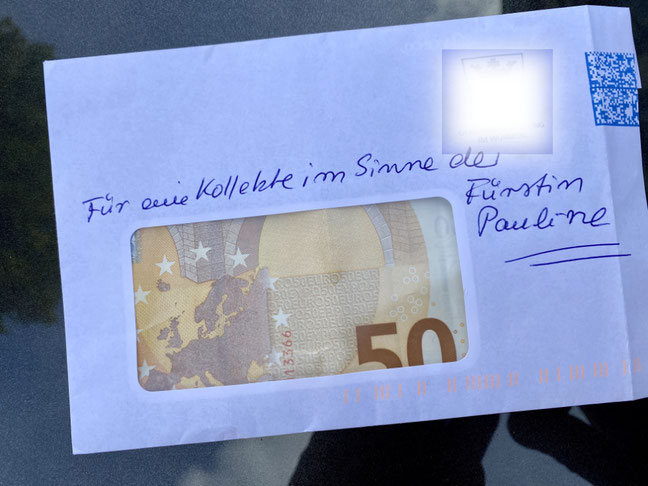 Für eine Kollekte im Sinne der
Fürstin
Pauline
13366
50